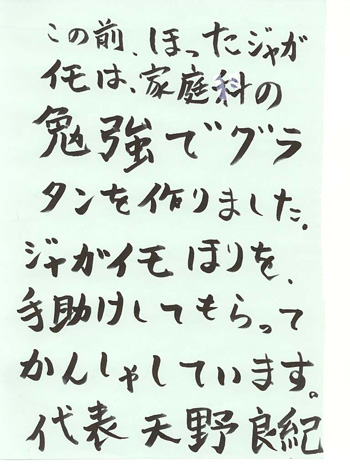 この前、ほったジャガ
イモは、家庭科の
勉強でグラ
タンを作りました。
ジャガイモほりを、
手助けしてもらって
かんしゃしています。
代表 天野良紀